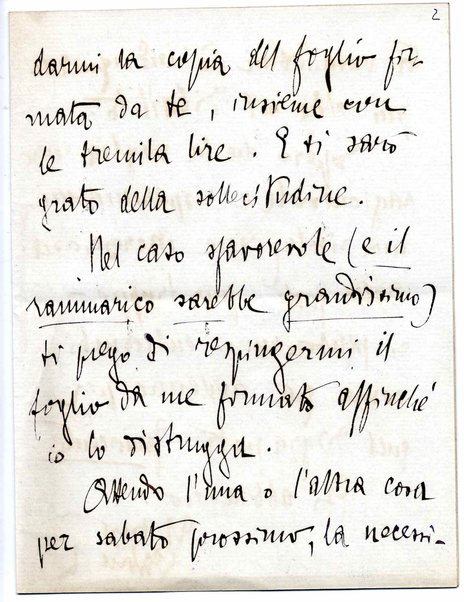 2
darmi la copia del foglio fir-
mata da te, insieme con
le tremila lire. E ti sarò
grato della sollecitudine.
Nel caso sfavorevole (e il
rammarico sarebbe grandissimo)
ti prego di respingermi il
foglio da me firmato affinché
io lo distrugga.
Attendo l'una o l'altra cosa
per sabato prossimo, la necessi-